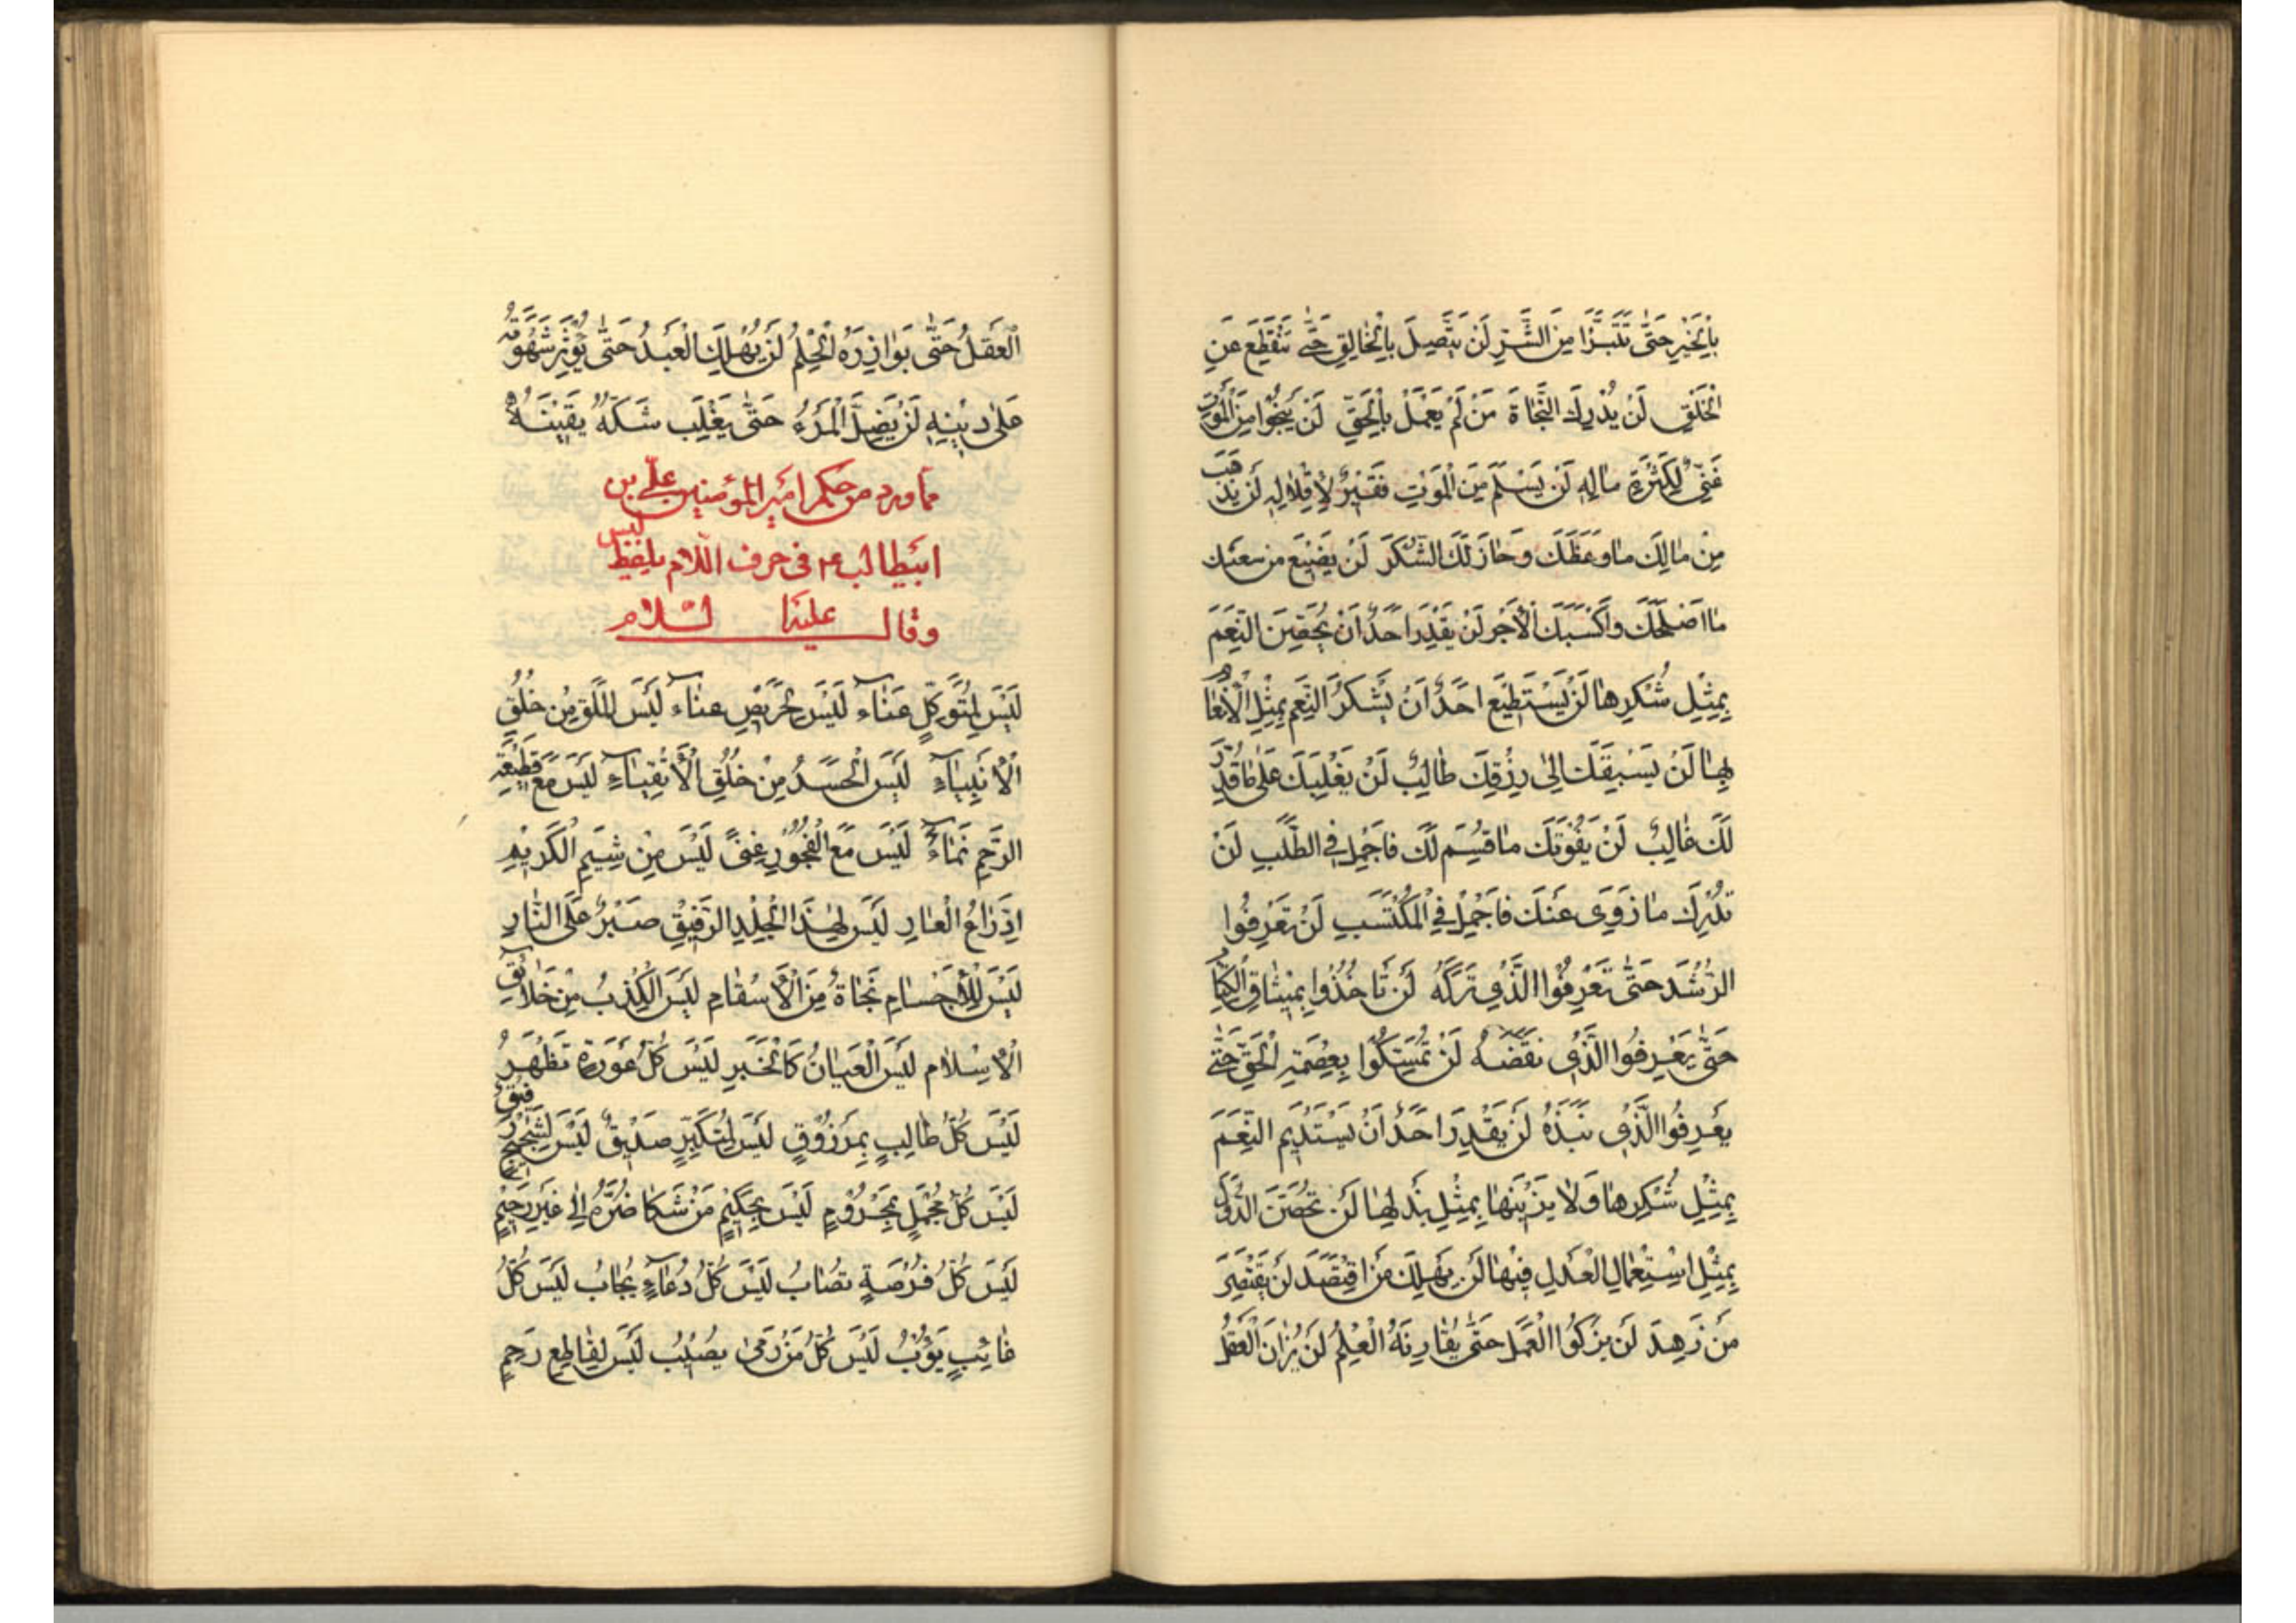 بِالْخَيْرِ حَتّٰى تَتَبَرَّا مِنَ الشَّرِّ لَنْ يَتَّصِلَ بِالْخٰالِقِ حَتّٰى تَنْقَطِعَ عَنِ
الْخَلْقِ لَنْ يُدْرِكَ النَّجٰاةَ مَنْ لَمْ يَعْمَلْ بِالْحَقِّ لَنْ يَنْجُوا مِنَ الْمَوْتِ
غَنِيٌّ لِكَثْرَةِ مٰالِهِ لَنْ يَسْلَمَ مِنَ الْمَوْتِ فَقِيرٌ لِاِقْلٰالِهِ لَنْ يَذْهَبَ
مِنْ مٰالِكَ مٰا وَعَظَكَ وَحٰازَ لَكَ الشُّكْرَ لَنْ يَضِيعَ مِنْ سَعْيِكَ
مٰا اَصْلَحَكَ وَاَكْسَبَكَ الْاَجْرَ لَنْ يَقْدِرَ اَحَدٌ اَنْ يُحَصِّنَ النِّعَمَ
بِمِثْلِ شُكْرِهٰا لَنْ يَسْتَطِيعَ اَحَدٌ اَنْ يَشْكُرَ النِّعَمَ بِمِثْلِ الْاِنْعٰامِ
بِهٰا لَنْ يَسْبِقَكَ اِلىٰ رِزْقِكَ طٰالِبٌ لَنْ يَغْلِبَكَ عَلىٰ مٰا قُدِّرَ
لَكَ غٰالِبٌ لَنْ يَفُوتَكَ مٰا قُسِمَ لَكَ فَاَجْمِلْ فِي الطَّلَبِ لَنْ
تُدْرِكَ مٰا زَوٰى عَنْكَ فَاَجْمِلْ فِي الْمُكْتَسَبِ لَنْ تَعْرِفُوا
الرُّشْدَ حَتّٰى تَعْرِفُوا الَّذِي تَرَكَهُ لَنْ تَاْخُذُوا بِمِيثٰاقِ الْكِتٰابِ
حَتّٰى يَعْرِفُوا الَّذِي نَقَضَهُ لَنْ تُمْسِكُوا بِعِصْمَةِ الْحَقِّ حَتّٰى
يَعْرِفُوا الَّذِي نَبَذَهُ لَنْ يَقْدِرَ اَحَدٌ اَنْ يَسْتَدِيمَ النِّعَمَ
بِمِثْلِ شُكْرِهٰا وَلٰا يَزِينَهٰا بِمِثْلِ بَذْلِهٰا لَنْ تُحَصَّنَ الدُّوَلُ
بِمِثْلِ اسْتِعْمٰالِ الْعَدْلِ فِيهٰا لَنْ يَهْلِكَ مَنِ اقْتَصَدَ لَنْ يَفْتَقِرَ
مَنْ زَهِدَ لَنْ يَزْكُوا الْعَمَلُ حَتّٰى يُقٰارِنَهُ الْعِلْمُ لَنْ يُزٰانَ الْعَقْلُ
الْعَقْلُ حَتّٰى يَوٰازِرَهُ الْحِلْمُ لَنْ يُهْلِكَ الْعَبْدُ حَتّٰى يُؤْثِرَ شَهْوَتَهُ
عَلىٰ دِينِهِ لَنْ يَضِلَّ الْمَرْءُ حَتّٰى يَغْلِبَ شَكُّهُ يَقِينَهُ
مما ورد من حكم امير المؤمنين علي بن
ابيطالب ع في حرف اللام بلفظ ليس
وقال علیه السلام
لَيْسَ لِمُتَوَكِّلٍ عَنٰاءٌ لَيْسَ لِحَرِيصٍ عَنٰاءٌ لَيْسَ الْمَلَقُ مِنْ خُلُقِ
الْاَنْبِيٰاءِ لَيْسَ الْحَسَدُ مِنْ خُلُقِ الْاَتْقِيٰاءِ لَيْسَ مَعَ قَطِيعَةِ
الرَّحِمِ نَمٰاءٌ لَيْسَ مَعَ الْفُجُورِ غِنًى لَيْسَ مِنْ شِيَمِ الْكَرِيمِ
اِدِّرٰاعُ الْعٰارِ لَيْسَ لِهٰذَا الْجِلْدِ الرَّقِيقِ صَبْرٌ عَلَى النّٰارِ
لَيْسَ لِلْاَجْسٰامِ نَجٰاةٌ مِنَ الْاَسْقٰامِ لَيْسَ الْكِذْبُ مِنْ خَلٰائِقِ
الْاِسْلٰامِ لَيْسَ الْعَيٰانُ كَالْخَبَرِ لَيْسَ كُلُّ عَوْرَةٍ تَظْهَرُ
لَيْسَ كُلُّ طٰالِبٍ بِمَرْزُوقٍ لَيْسَ لِمُتَكَبِّرٍ صَدِيقٌ لَيْسَ لِشَحِيحٍ رَفِيقٌ
لَيْسَ كُلُّ مُجْمِلٍ بِمَحْرُومٍ لَيْسَ بِحَكِيمٍ مَنْ شَكٰا ضُرَّهُ اِلىٰ غَيْرِ رَحِيمٍ
لَيْسَ كُلُّ فُرْصَةٍ تُصٰابُ لَيْسَ كُلُّ دُعٰاءٍ يُجٰابُ لَيْسَ كُلُّ
غٰائِبٍ يَؤُبُ لَيْسَ كُلُّ مَنْ رَمىٰ يُصِيبُ لَيْسَ لِقٰاطِعِ رَحِمٍ